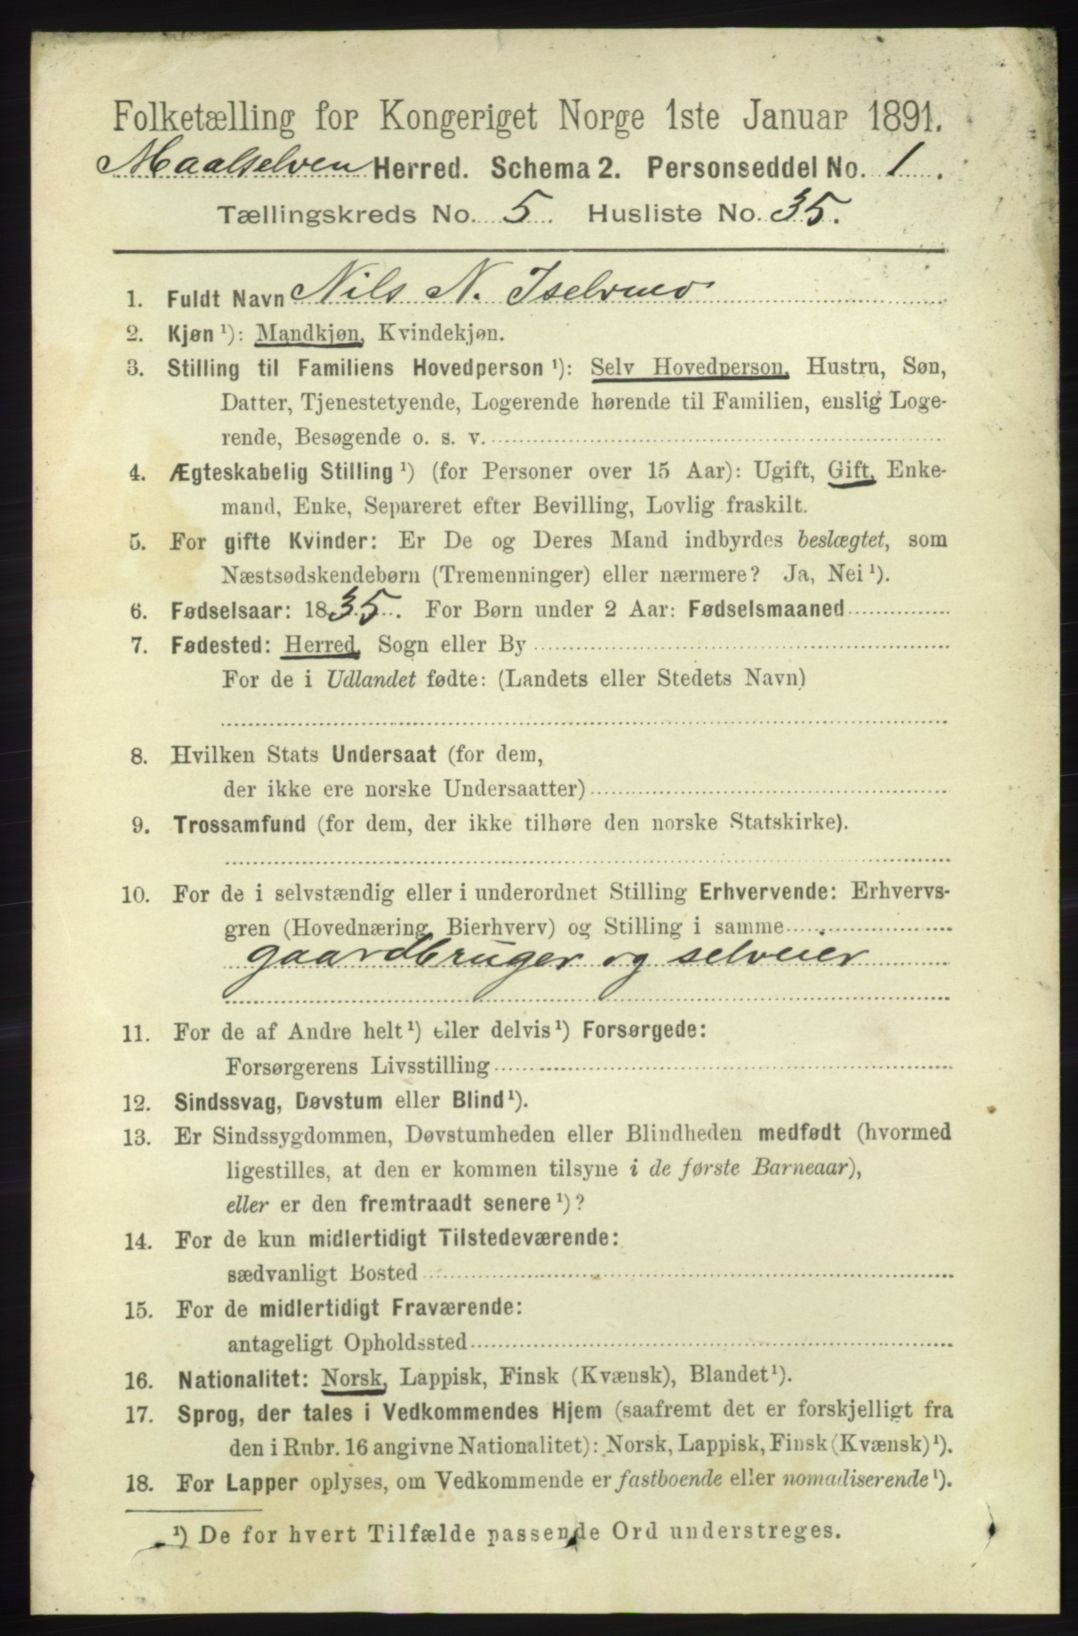 Folketælling for Kongeriget Norge 1ste Januar 1891.
Maalselven Herred. Schema 2. Personseddel No. 1.
Tællingskreds No. 5. Husliste No. 35.
1. Fuldt Navn Nils N. Iselvmo
2. Kjøn ¹): Mandkjøn, Kvindekjøn.
3. Stilling til Familiens Hovedperson ¹): Selv Hovedperson, Hustru, Søn,
Datter, Tjenestetyende, Logerende hørende til Familien, enslig Loge-
rende, Besøgende o. s. v.
4. Ægteskabelig Stilling ¹) (for Personer over 15 Aar): Ugift, Gift, Enke-
mand, Enke, Separeret efter Bevilling, Lovlig fraskilt.
5. For gifte Kvinder: Er De og Deres Mand indbyrdes beslægtet, som
Næstsødskendebørn (Tremenninger) eller nærmere? Ja, Nei ¹).
6. Fødselsaar: 1835. For Børn under 2 Aar: Fødselsmaaned
7. Fødested: Herred, Sogn eller By
For de i Udlandet fødte: (Landets eller Stedets Navn)
8. Hvilken Stats Undersaat (for dem,
der ikke ere norske Undersaatter)
9. Trossamfund (for dem, der ikke tilhøre den norske Statskirke).
10. For de i selvstændig eller i underordnet Stilling Erhvervende: Erhvervs-
gren (Hovednæring, Bierhverv) og Stilling i samme
gaardbruger og selveier
11. For de af Andre helt ¹) eller delvis ¹) Forsørgede:
Forsørgerens Livsstilling
12. Sindssvag, Døvstum eller Blind ¹).
13. Er Sindssygdommen, Døvstumheden eller Blindheden medfødt (hvormed
ligestilles, at den er kommen tilsyne i de første Barneaar),
eller er den fremtraadt senere ¹)?
14. For de kun midlertidigt Tilstedeværende:
sædvanligt Bosted
15. For de midlertidigt Fraværende:
antageligt Opholdssted
16. Nationalitet: Norsk, Lappisk, Finsk (Kvænsk), Blandet ¹).
17. Sprog, der tales i Vedkommendes Hjem (saafremt det er forskjelligt fra
den i Rubr. 16 angivne Nationalitet): Norsk, Lappisk, Finsk (Kvænsk) ¹).
18. For Lapper oplyses, om Vedkommende er fastboende eller nomadiserende ¹).
¹) De for hvert Tilfælde passende Ord understreges.